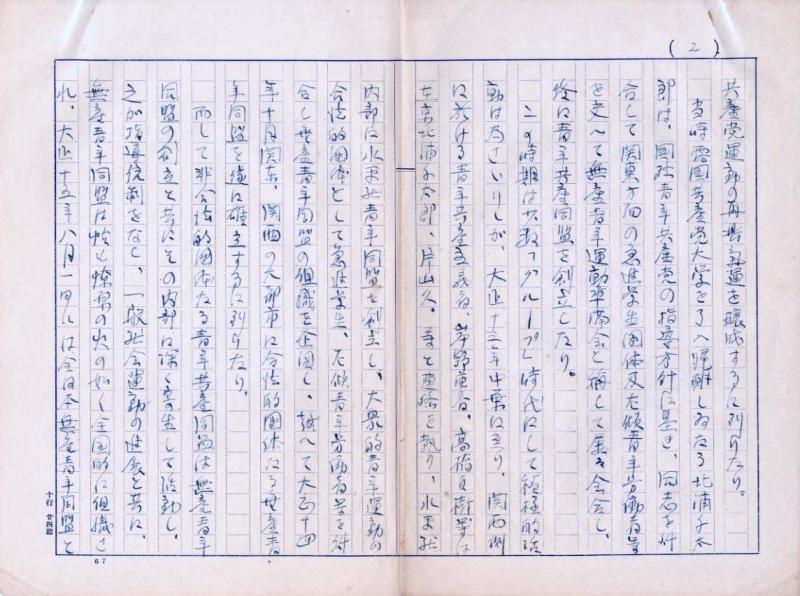 (2)
共産党運動の再挙気運を醸成するに到りたり。
当時露国共産党大学を了へ帰朝しゐたる北浦千太
郎は、国際青年共産党の指導方針に基き、同志を糾
合して関東方面の急進学生団体及左傾青年労働者等
を交へて無産青年運動準備会と稱して屡々会合し、
後に青年共産同盟を創立したり。
この時期は少数「グループ」時代にして積極的活
動は為さゞりしが、大正十三年中葉に至り、関西側
に於ける青年共産主義者、岸野重春、高橋貞樹等は
在京北浦千太郎、片山久、等と連絡を執り、水平社
内部に水平社青年同盟を創立し、大衆的青年運動の
合法的団体として急進学生、左傾青年労働者等を糾
合し無産青年同盟の組織を企図し、越へて大正十四
年十月関東、関西の大都市に合法的団体たる無産青
年同盟を遂に確立するに到りたり。
而して非合法的団体たる青年共産同盟は無産青年
同盟の創立と共にその内部に深く寄生して活動し、
之が指導統制をなし、一般社会運動の進展と共に、
無産青年同盟は恰も燎原の火の如く全国的に組織さ
れ、大正十五年八月一日には全日本無産青年同盟と
十行 廿四詰
67